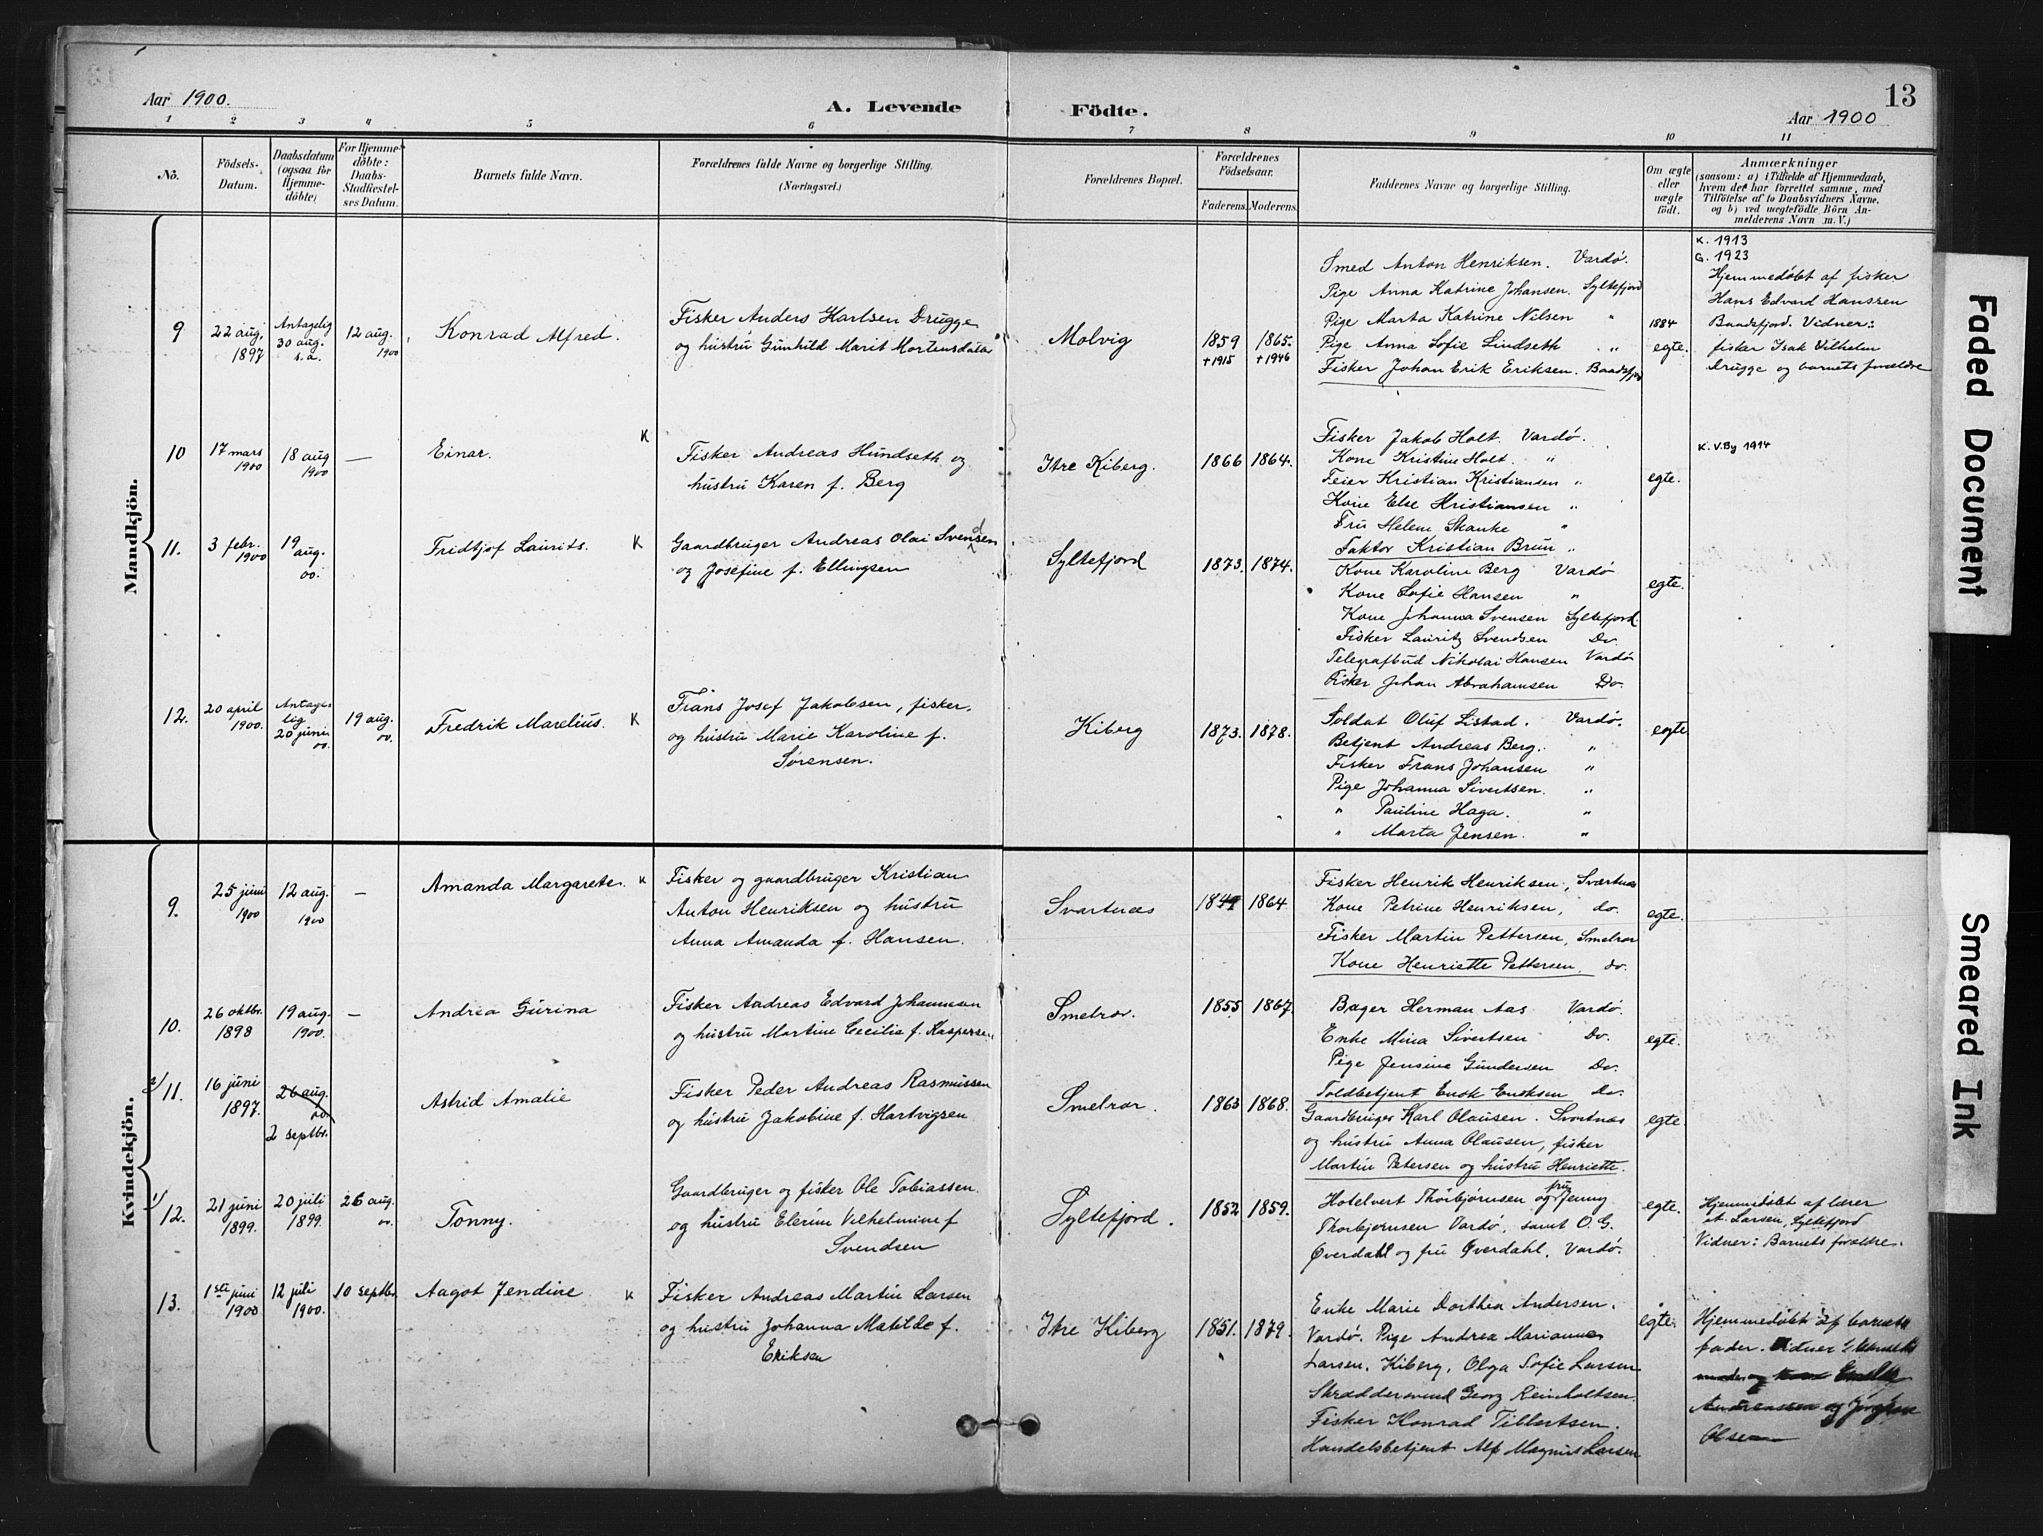 13
Aar 1900.
A. Levende
Födte.
Aar 1900
1 2 3 4 5 6 7 8 9 10 11
No.
Födsels-
Datum.
Daabsdatum
(ogsaa for
Hjemme-
döbte)
For Hjemme-
döbte:
Daabs-
Stadfæstel-
ses Datum.
Barnets fulde Navn.
Forældrenes fulde Navne og borgerlige Stilling.
(Næringsvei.)
Forældrenes Bopæl.
Forældrenes
Födselsaar.
Faderens. Moderens.
Faddernes Navne og borgerlige Stilling.
Om ægte
eller
uægte
födt.
Anmærkninger
(saasom: a) i Tilfælde af Hjemmedaab,
hvem det har forrettet samme, med
Tilföielse af to Daabsvidners Navne,
og b) ved uægtefödte Börn An-
melderens Navn m. V.)
Mandkjön.
9
22 aug.
1897
Antagelig
30 aug.
s.a.
12 aug.
1900
Konrad Alfred.
Fisker Anders Karlsen Drugge
og hustru Gunhild Marit Mortensdatter
Molvig
1859
+1915
1865.
+1946
Smed Anton Henriksen. Vardø.
Pige Anna Katrine Johansen. Syltefjord
Pige Marta Katrine Nilsen "
Pige Anna Sofie Lindseth "
Fisker Johan Erik Eriksen. Baadsfjord
1884
egte.
K. 1913
G. 1923
Hjemmedøbt af fisker
Hans Edvard Hanssen
Baadsfjord. Vidner:
fisker Isak Vilhelm
Drugge og barnets forældre
10
17 mars
1900
18 aug
1900
—
Einar.
K
Fisker Andreas Hundseth og
hustru Karen f. Berg
Itre Kiberg.
1866
1864.
Fisker Jakob Holt. Vardø.
Kone Kristine Holt. "
Feier Kristian Kristiansen "
Kone Else Kristiansen "
Fru Helene Skanke "
Faktor Kristian Brun "
egte.
K. V.By 1914
11.
3 febr.
1900
19
aug.
00.
Fridtjof Laurits.
K
Gaardbruger Andreas Olai Svendsen
og Josefine f. Ellingsen
Syltefjord
1873.
1874.
Kone Karoline Berg Vardø
Kone Sofie Hansen "
Kone Johanna Svensen Syltefjord.
Fisker Lauritz Svendsen Do.
Telegrafbud Nikolai Hansen Vardø
Fisker Johan Abrahamsen Do.
egte.
12.
20 april
1900.
Antage-
lig
20 juni
00.
19 aug.
00.
Fredrik Marelius.
K
Frans Josef Jakobsen, fisker.
og hustru Marie Karoline f.
Sørensen.
Kiberg
1873.
1878.
Soldat Oluf Listad. Vardø.
Betjent Andreas Berg. "
Fisker Frans Johansen "
Pige Johanna Sivertsen. "
" Pauline Haga. "
" Marta Jensen. "
egte
Kvindekjön.
9.
25 juni
1900
12 aug.
1900
—
Amanda Margarete.
K
Fisker og gaardbruger Kristian
Anton Henriksen og hustru
Anna Amanda f. Hansen.
Svartnæs
1864
Fisker Henrik Henriksen, Svartnæs
Kone Petrine Henriksen, do.
Fisker Martin Pettersen, Smelror
Kone Henriette Pettersen, do.
egte.
10.
26 oktbr.
1898
19 aug.
1900.
—
Andrea Gurina
Fisker Andreas Edvard Johannesen
og hustru Martine Cecilia f. Kaspersen
Smelror.
1855
1867.
Bager Herman Aas Vardø.
Enke Mina Sivertsen Do.
Pige Jensine Gundersen Do.
Toldbetjent Enok Enoksen Do.
egte.
2/
11.
16 juni
1897.
26 aug.
00.
2 septbr.
Astrid Amalie
Fisker Peder Andreas Rasmussen
og hustru Jakobine f. Hartvigsen
Smelror.
1863
1868.
Gaardbruger Karl Olausen. Svartnæs
og hustru Anna Olausen, fisker
Martin Petersen og hustru Henriette.
egte.
1/
12.
21 juni
1899.
20 juli
1899.
26 aug.
00.
Tonny.
Gaardbruger og fisker Ole Tobiassen
og hustru Elerine Vilhelmine f
Svendsen
Syltefjord.
1852
1859.
Hotelvert Thorbjørnsen og fru Jenny
Thorbjørnsen Vardø, samt O.G.
Øverdahl og fru Øverdahl, Vardø.
egte.
Hjemmedøbt af lærer
Larsen, Syltefjord
Vidner: Barnets forældre.
13.
1ste juni
1900
12 juli
1900.
10 septbr.
Aagot Jendine
K
Fisker Andreas Martin Larsen
og hustru Johanna Matilde f.
Eriksen
Itre Kiberg
1851.
1879.
Enke Marie Dorthea Andersen.
Vardø. Pige Andrea Marianne
Larsen, Kiberg, Olga Sofie Larsen
Skræddersvend Georg Reinholtsen.
Fisker Konrad Tilbertsen.
Handelsbetjent Alf Magnus Larsen
egte.
Hjemmedøbt af barnets
fader. Vidner
moder og
Andreassen og
Olsen
Faded Document
Smeared Ink